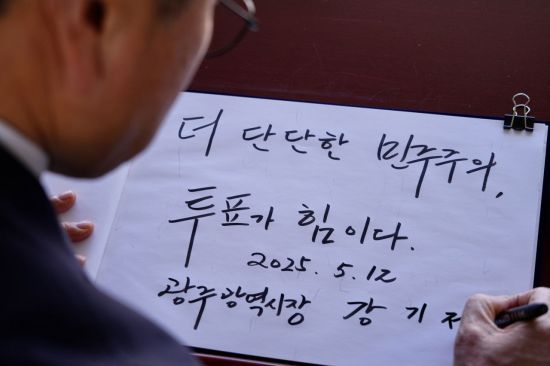 더 단단한 민주주의,
투표가 힘이다.
2025. 5. 12
광주광역시장 강 기